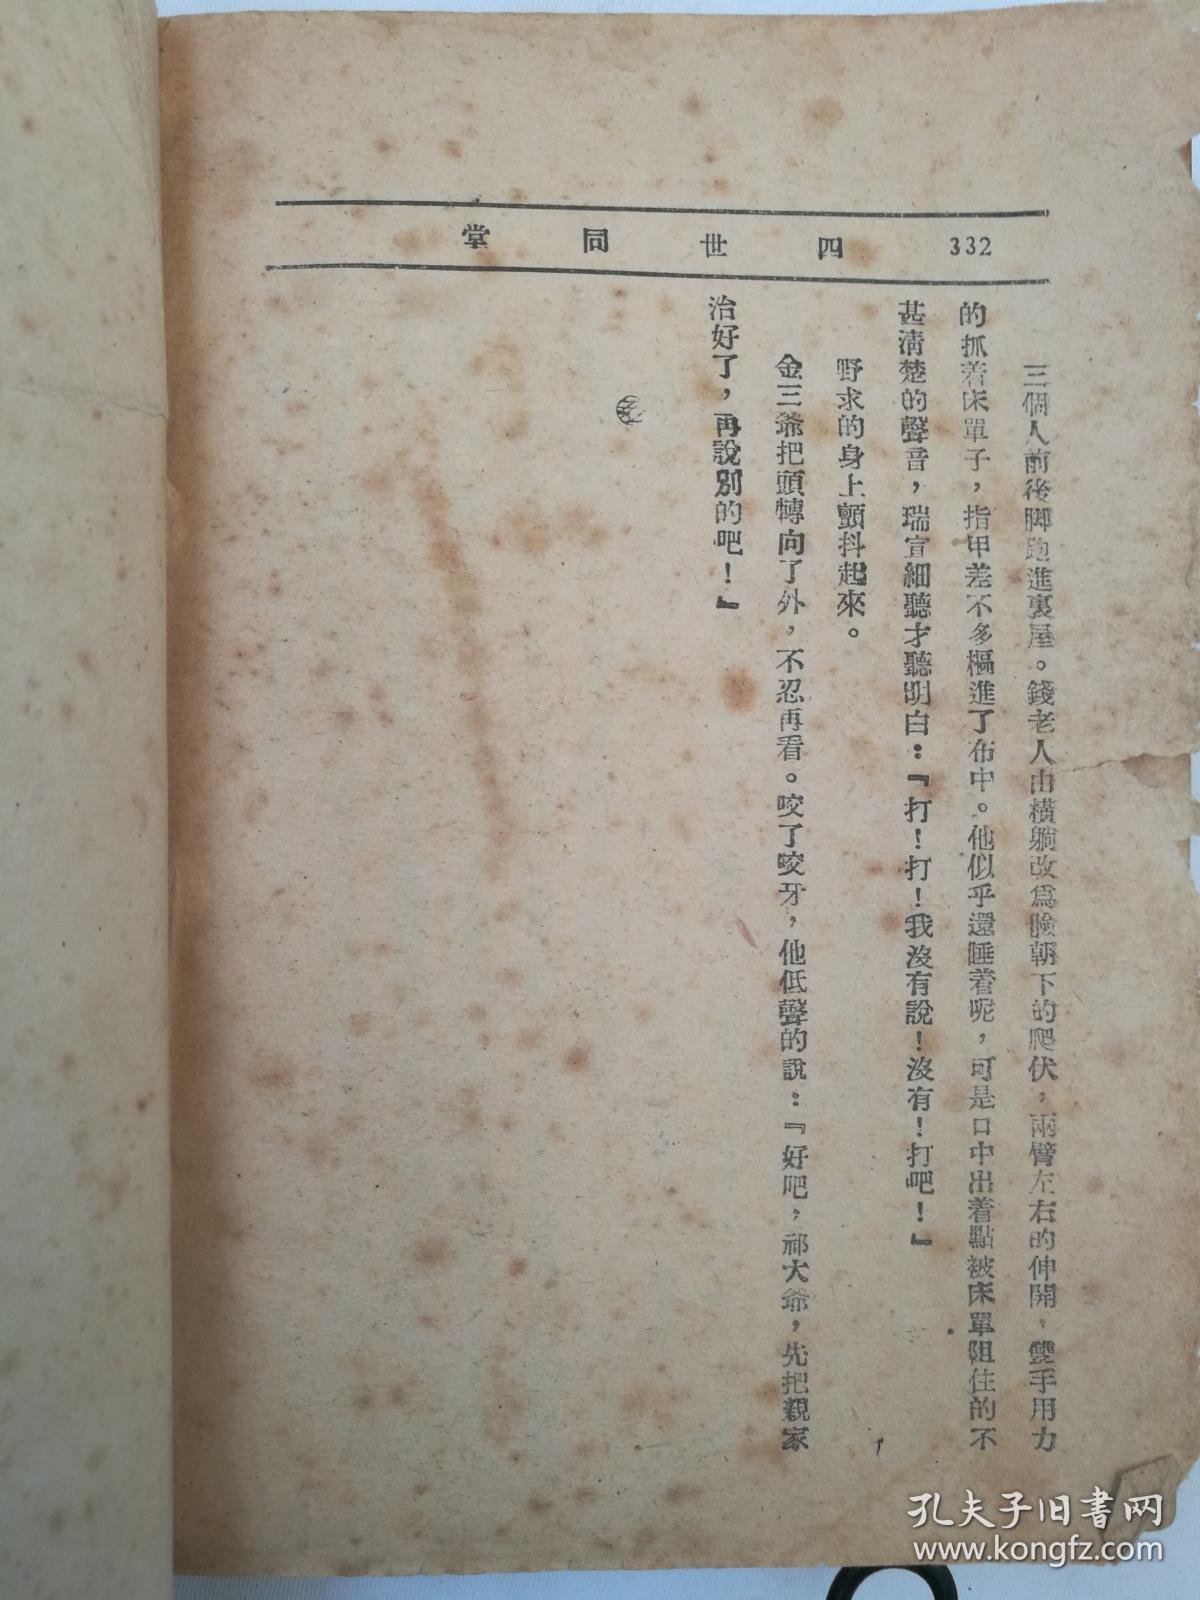 332 四世同堂
三個人前後脚跑進裏屋。錢老人由橫躺改爲臉朝下的爬伏，兩臂左右的伸開，雙手用力
的抓着床單子，指甲差不多摳進了布中。他似乎還睡着呢，可是口中出着點被床單阻住的不
甚清楚的聲音，瑞宣細聽才聽明白：『打！打！我沒有說！沒有！打吧！』
野求的身上顫抖起來。
金三爺把頭轉向了外，不忍再看。咬了咬牙，他低聲的說：『好吧，祁大爺，先把親家
治好了，再說別的吧！』
孔夫子旧書网
www.kongfz.com